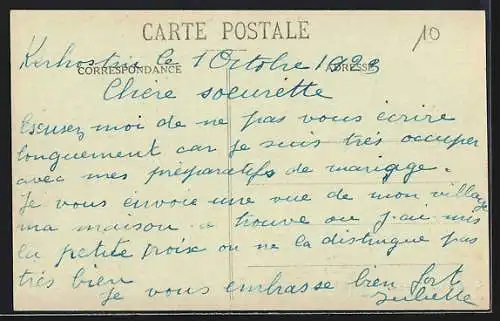 CARTE POSTALE
10
Kerhostin le 1 Octobre 1923
CORRESPONDANCE ADRESSE
Chère soeurette
Escusez moi de ne pas vous écrire
longuement car je suis très occuper
avec mes préparatifs de mariage.
Je vous envoie une vue de mon village
ma maison se trouve ou j'ai mis
la petite croix on ne la distingue pas
très bien
Je vous embrasse bien fort
Juliette